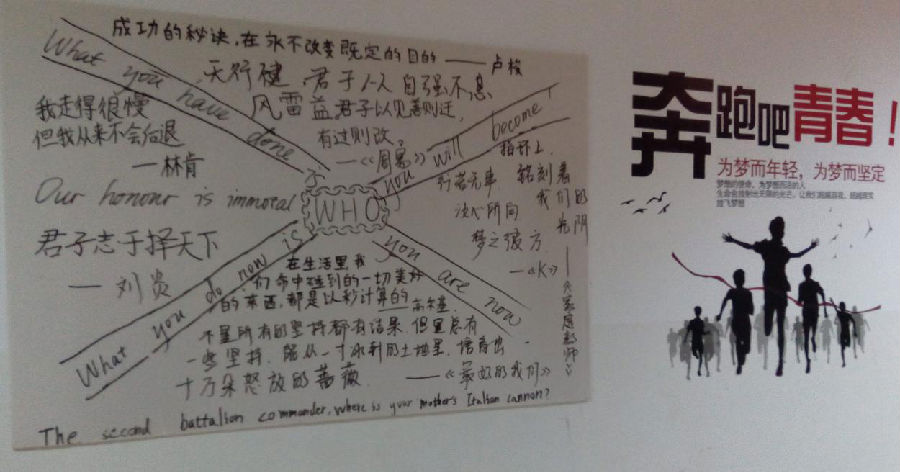 成功的秘诀,在永不改变既定的目的——卢梭
天行健,君子以自强不息
风雷益君子以见善则迁,
有过则改。
——《周易》
What you have done
我走得很慢
但我从来不会后退
——林肯
Our honour is immotal
君子志于择天下
——刘
What you do now is
WHO
you will become!
铭刻着
我们的
光阴
决心所向
梦之彼方.
——《K》
you are now
在生活里,我
们命中碰到的一切美好
的东西,都是以秒计算的
不是所有的坚持都有结果,但是总有
一些坚持,能从一寸冰封的土地里,培育出
十万朵怒放的蔷薇.
——《最好的我们》
The second battalion commander, where is your mother's Italian cannon?
奔跑吧青春!
为梦而年轻,为梦而坚定